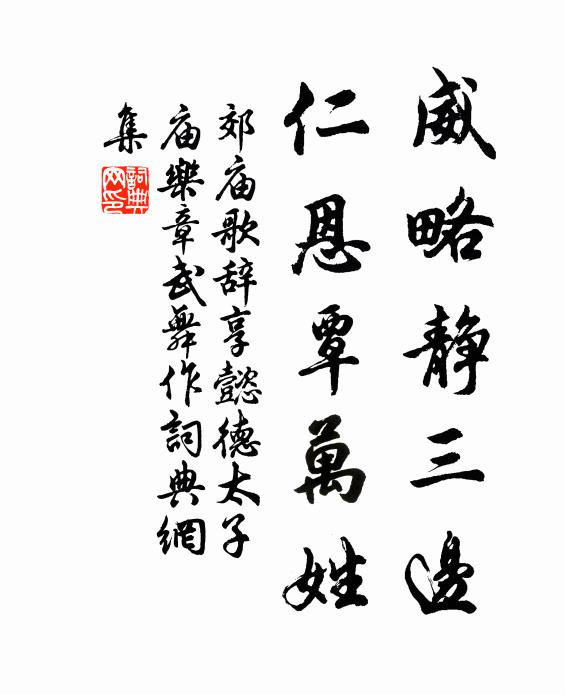 威略静三邊
仁恩覃萬姓
郊庙歌辞享懿德太子
庙樂章武舞作詞典網
集
詞典
网印